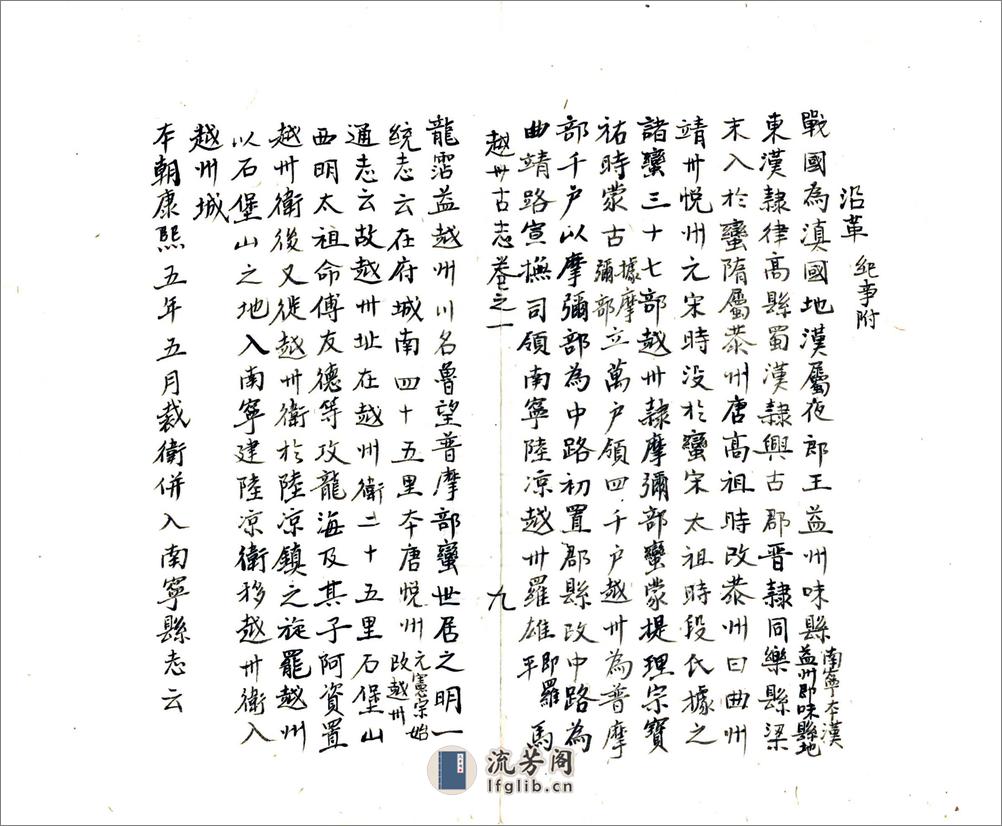 沿革 紀事附
戰國為滇國地漢屬夜郎王益州味縣南寧本漢益州郡味縣地
東漢隸律高縣蜀漢隸興古郡晉隸同樂縣梁
末入於蠻隋屬恭州唐高祖時改恭州曰曲州
靖州悅州元宋時没於蠻宋太祖時段氏據之
諸蠻三十七部越州隸摩彌部蠻蒙提理宗寳
祐時蒙古據摩彌部立萬户領四千户越州為普摩
部千户以摩彌部為中路初置郡縣改中路為
曲靖路宣撫司領南寧陸凉越州羅雄即羅平馬
越州古志卷之一 九
龍霑益越州川名魯望普摩部蠻世居之明一
統志云在府城南四十五里本唐悅州元憲宗始改越州
通志云故越州址在越州衛二十五里石堡山
西明太祖命傅友德等攻龍海及其子阿資置
越州衛後又徙越州衛於陸凉鎮之旋罷越州
以石堡山之地入南寧建陸凉衛移越州衛入
越州城
本朝康熙五年五月裁衛併入南寧縣志云
流芳阁
lfglib.cn